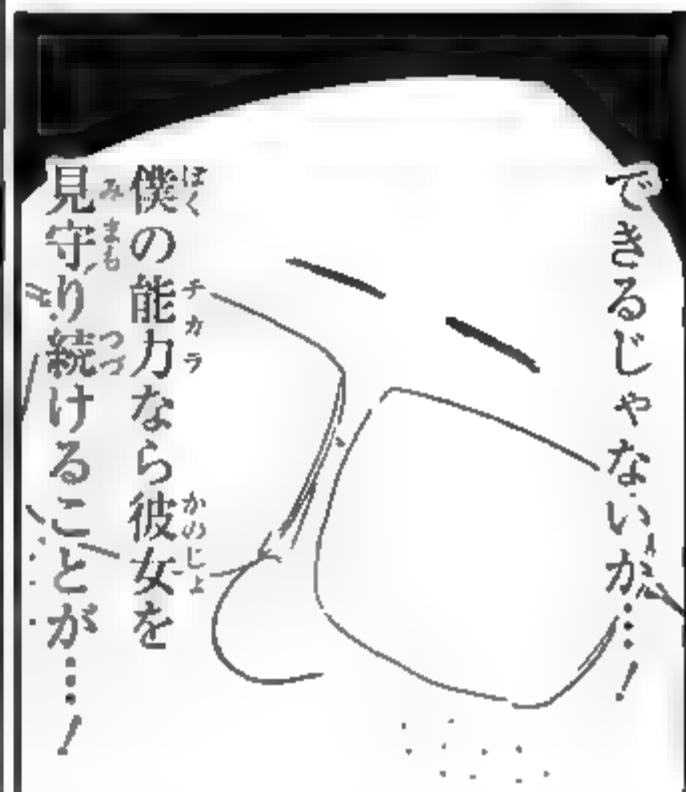 できるじゃないか…!
僕の能力なら彼女を
見守り続けることが…!